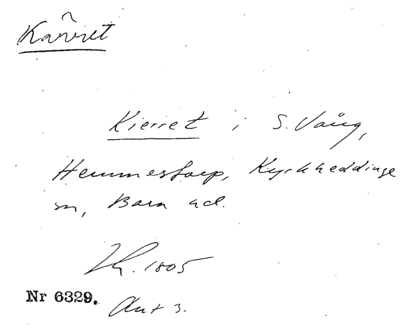 Kärret
Kierret i S. Vång,
Hemmestorp, Kyrkheddinge
sn, Bara hd.
Lm. 1805
Nr 6329. Akt 3.